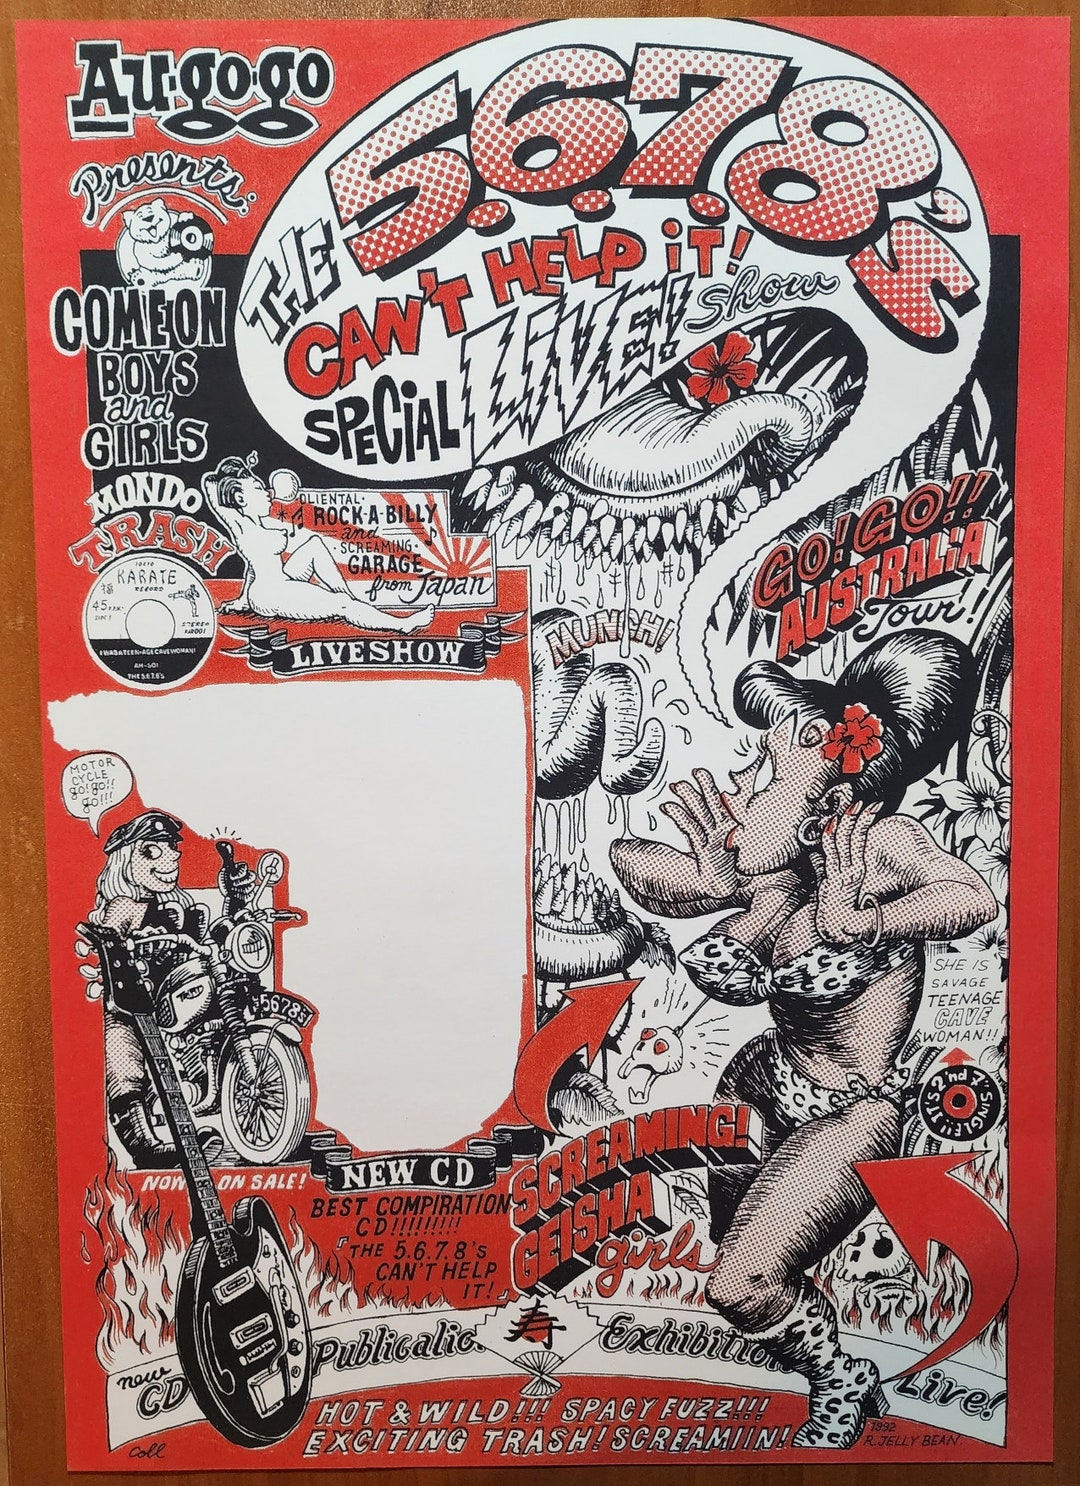 Au·go·go
Presents:
COME ON
BOYS
and
GIRLS
MONDO
TRASH
THE 5.6.7.8's
CAN'T HELP iT!
SPECiAL LiVE! Show
OLIENTAL·
ROCK·A·BILLY
and
·SCREAMING·
GARAGE
from Japan
LIVESHOW
KARATE
RECORD
45 R.P.M.
SIDE 1
STEREO
I WAS A TEEN-AGE CAVEWOMAN!
AM-501
THE 5.6.7.8's
GO! GO!!
AUSTRALIA
Tour!!
MUNCH!
MOTOR
CYCLE
go!go!!
go!!!
5678's
SHE IS
SAVAGE
TEENAGE
CAVE
WOMAN!!
2'nd 7" SINGLE!!
NOW ON SALE!
NEW CD
BEST COMPIRATION
CD!!!!!!!!!
「THE 5.6.7.8's
CAN'T HELP
IT!
SCREAMING!
GEISHA
girls
new
CD
Publicalic.
寿
Exhibition
Live!
HOT & WILD!!! SPACY FUZZ!!!
EXCITING TRASH! SCREAMIIN!
Coll
1992
R.JELLY BEAN